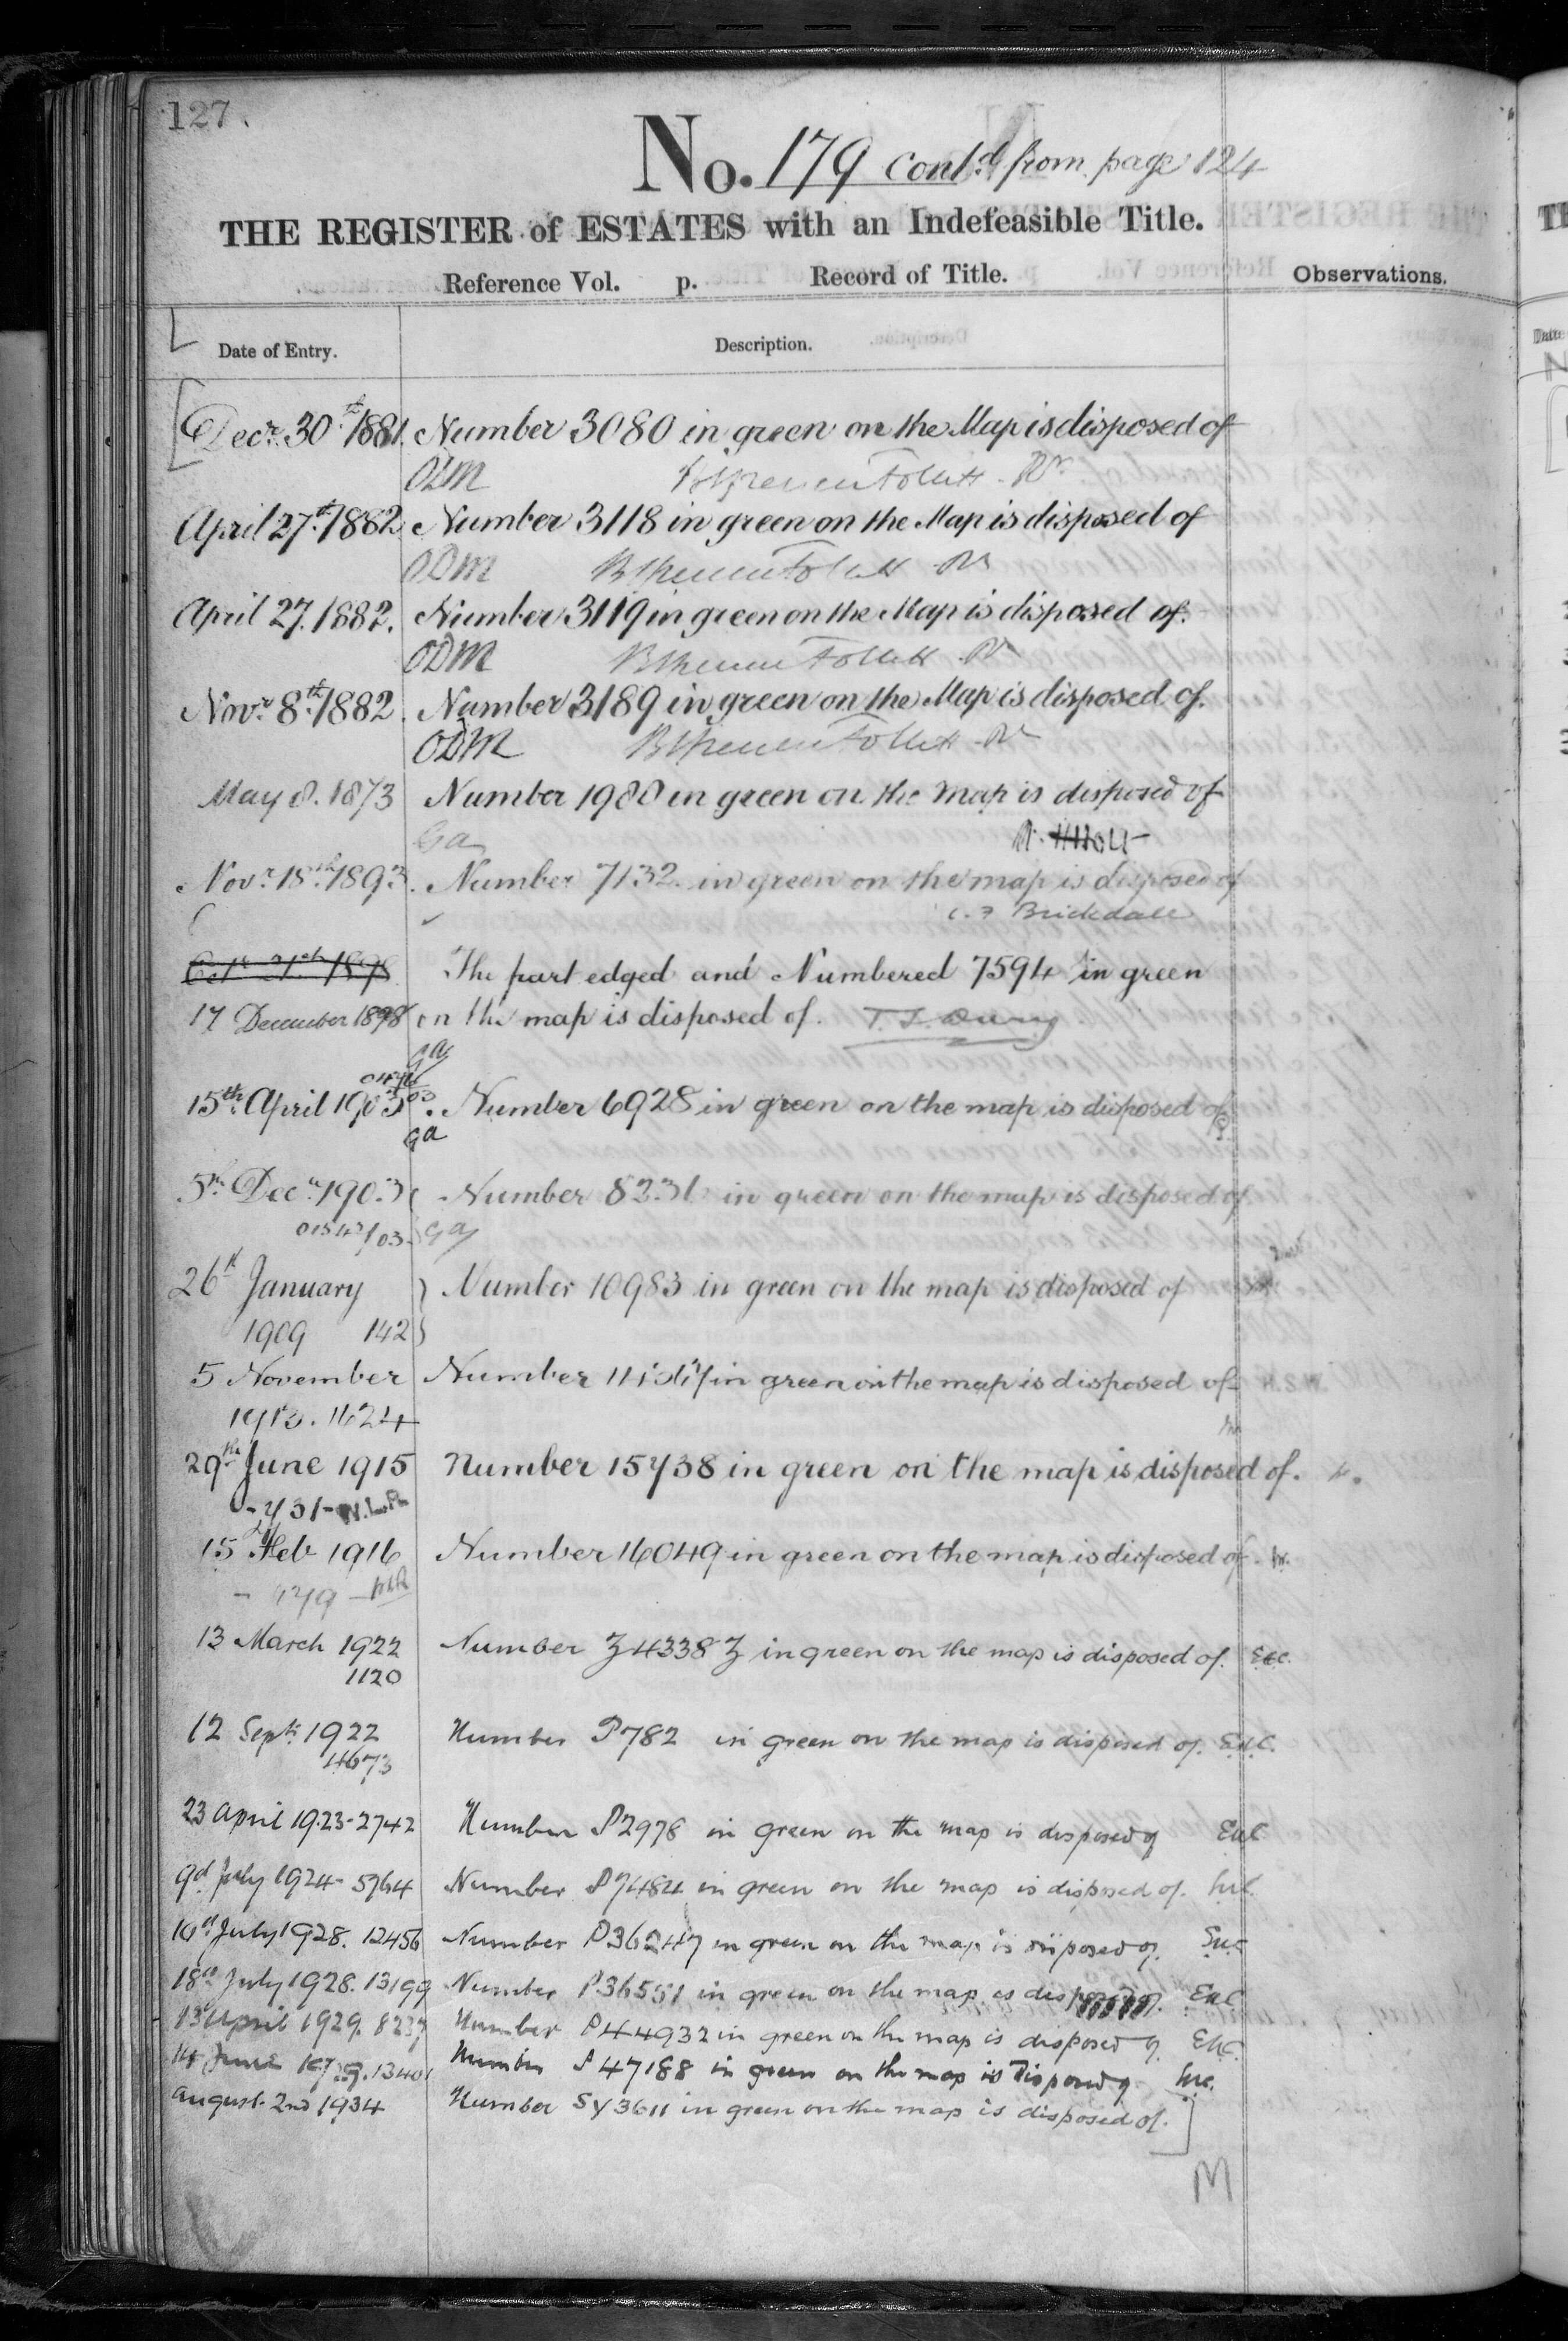 127.
No. 179 contd from page 124
THE REGISTER of ESTATES with an Indefeasible Title.
Reference Vol. p. Record of Title. Observations.
Date of Entry. Description.
Decr. 30th 1881. Number 3080 in green on the Map is disposed of
ODM
April 27th 1882. Number 3118 in green on the Map is disposed of
ODM
April 27. 1882. Number 3119 in green on the Map is disposed of.
ODM
Novr. 8th 1882. Number 3189 in green on the Map is disposed of.
ODM
May 8. 1873 Number 1980 in green on the map is disposed of
Ga
Novr. 18th 1893. Number 7132 in green on the map is disposed of
C. F Brickdale
The part edged and Numbered 7594 in green
17 December 1898 on the map is disposed of.
Ga
15th April 1903. Number 6928 in green on the map is disposed of
Ga
5th Decr 1903 Number 8231 in green on the map is disposed of
/03. Ga
26th January Number 10983 in green on the map is disposed of
1909 142
5 November Number in green on the map is disposed of
1913. 1624
29th June 1915 Number 15738 in green on the map is disposed of.
-731- W.L.R.
15 Feb 1916 Number 16049 in green on the map is disposed of.
13 March 1922 Number Z4338Z in green on the map is disposed of.
1120
12 Sept. 1922 Number P782 in green on the map is disposed of.
4673
23 April 1923-2742 Number P2978 in green on the map is disposed of
July 1924- 5764 Number P7484 in green on the map is disposed of.
10th July 1928. 12456 Number P36247 in green on the map is disposed of.
18th July 1928. 13199 Number P36551 in green on the map is disposed of.
13 April 1929. 8237 Number P44932 in green on the map is disposed of.
14 June 1929. 13401 Number P47188 in green on the map is disposed of
August 2nd 1934 Number SY3611 in green on the map is disposed of.
M